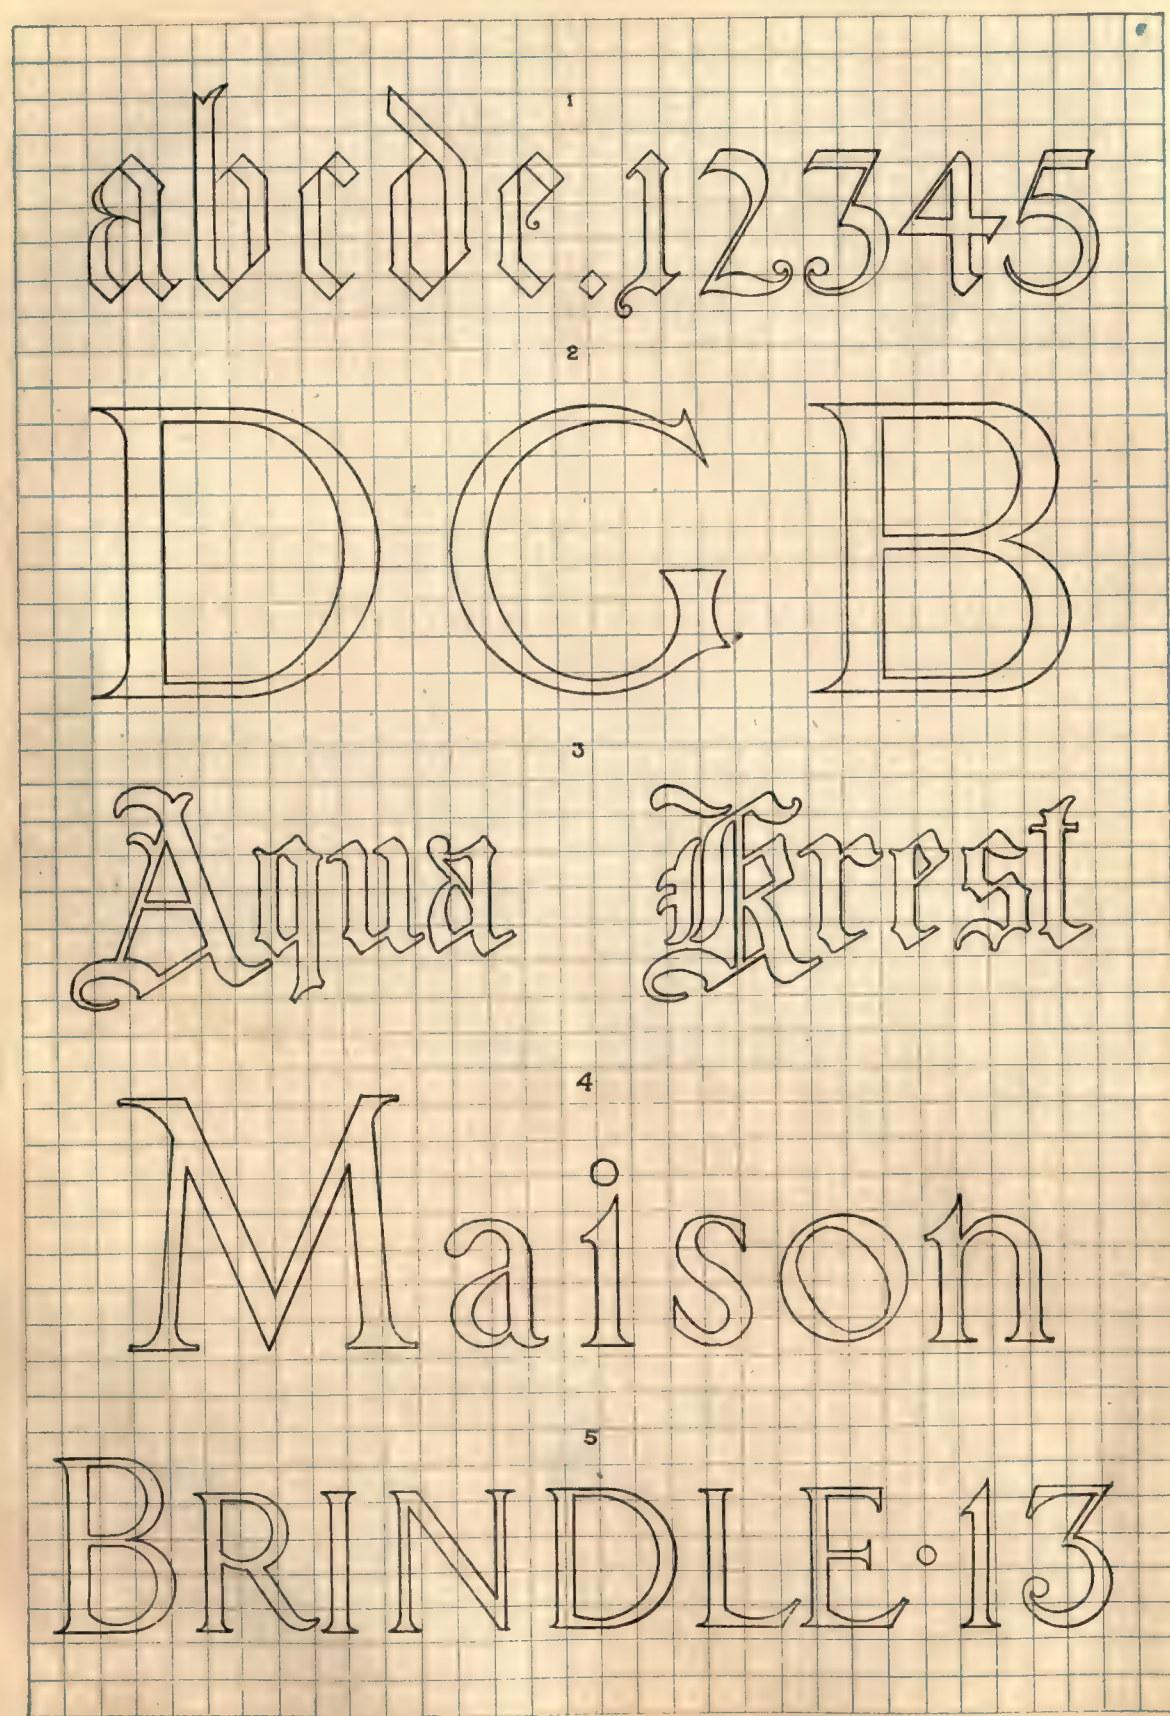 1
abcde.12345
2
D G B
3
Aqua Krest
4
Maison
5
BRINDLE·13